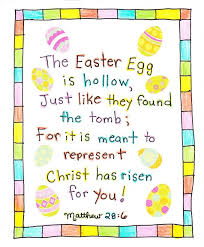 The Easter Egg
is hollow,
Just like they found
the tomb;
For it is meant to
represent
Christ has risen
for you!
Matthew 28:6